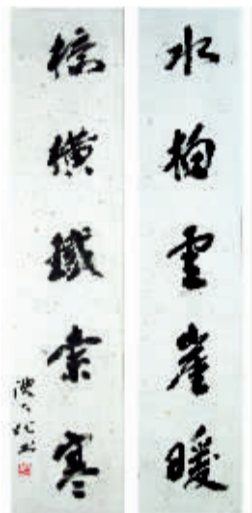 水拍雲崖暖
橋橫鐵索寒